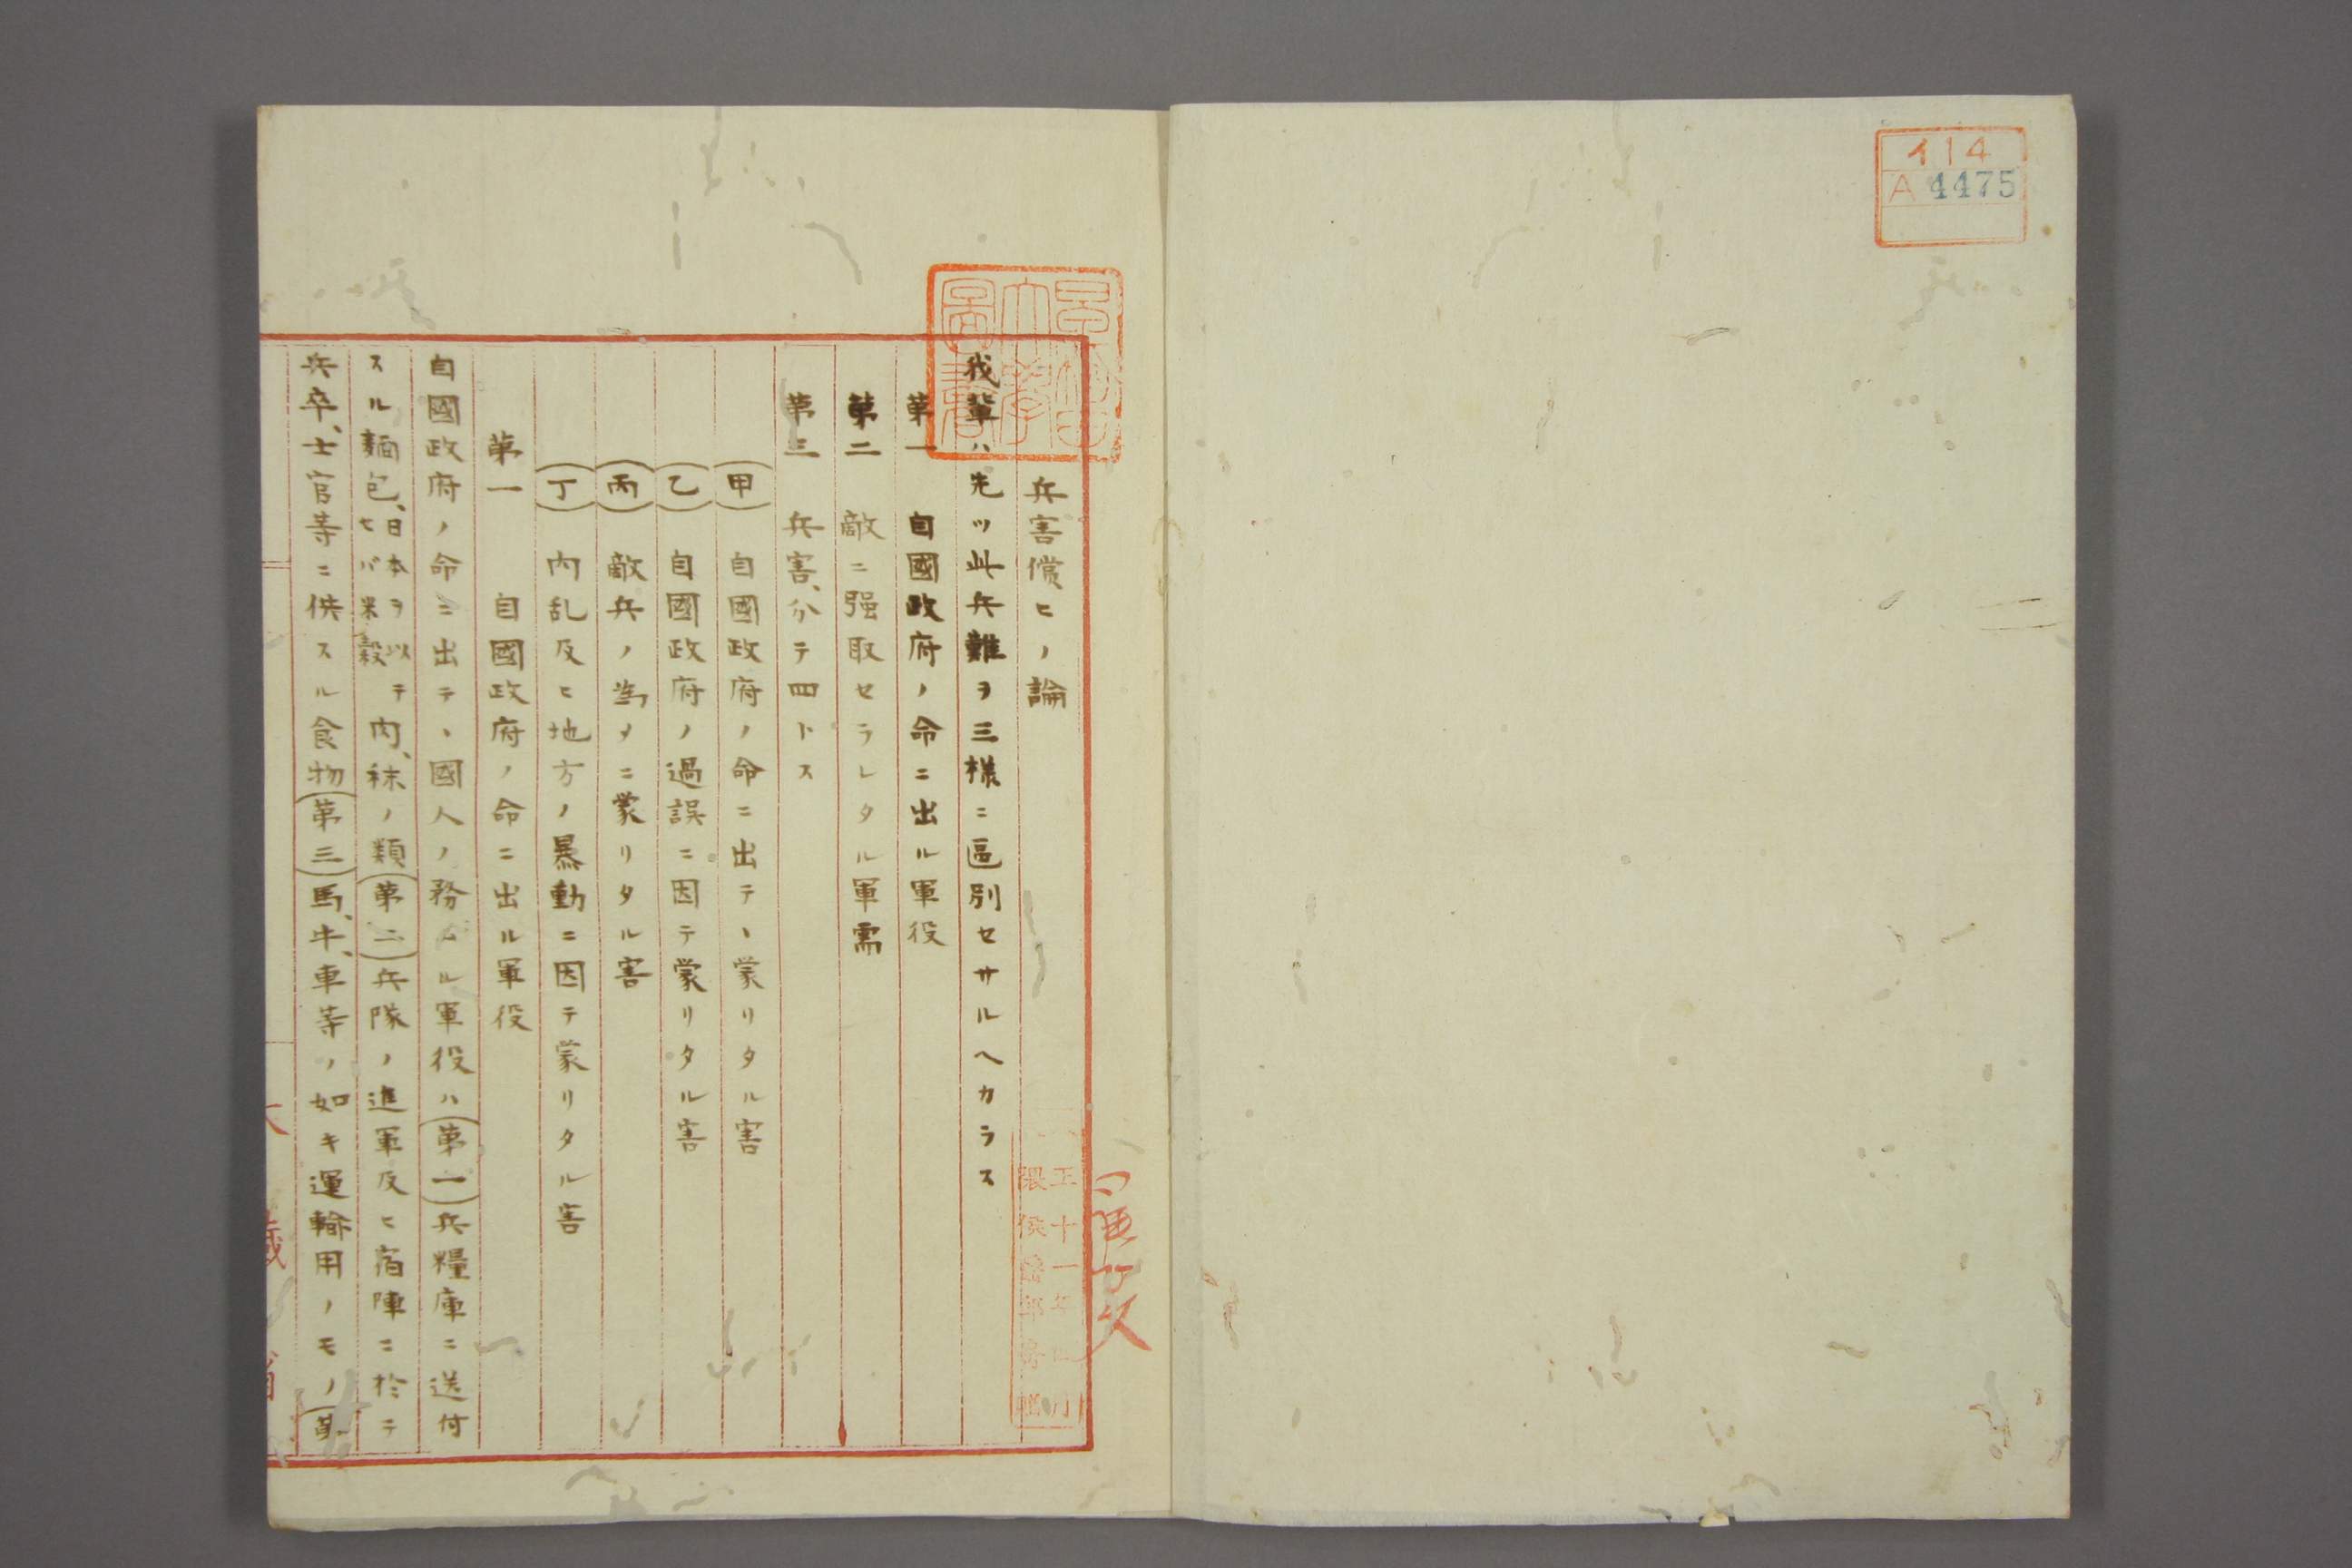 イ14
A 4475
早稲田大學圖書
兵害償ヒノ論
我輩ハ先ツ此兵難ヲ三様ニ區別セサルヘカラス
第一 自國政府ノ命ニ出ル軍役
第二 敵ニ强取セラレタル軍需
第三 兵害、分テ四トス
(甲) 自國政府ノ命ニ出テ、蒙リタル害
(乙) 自國政府ノ過誤ニ因テ蒙リタル害
(丙) 敵兵ノ為メニ蒙リタル害
(丁) 內乱及ヒ地方ノ暴動ニ因テ蒙リタル害
第一 自國政府ノ命ニ出ル軍役
自國政府ノ命ニ出テ、國人ノ務ムル軍役ハ(第一)兵糧庫ニ送付
スル麵包、日本ヲ以テセバ米穀 肉、秣ノ類(第二)兵隊ノ進軍及ヒ宿陣ニ於テ
兵卒、士官等ニ供スル食物(第三)馬、牛、車等ノ如キ運輸用ノモノ(第
大藏省